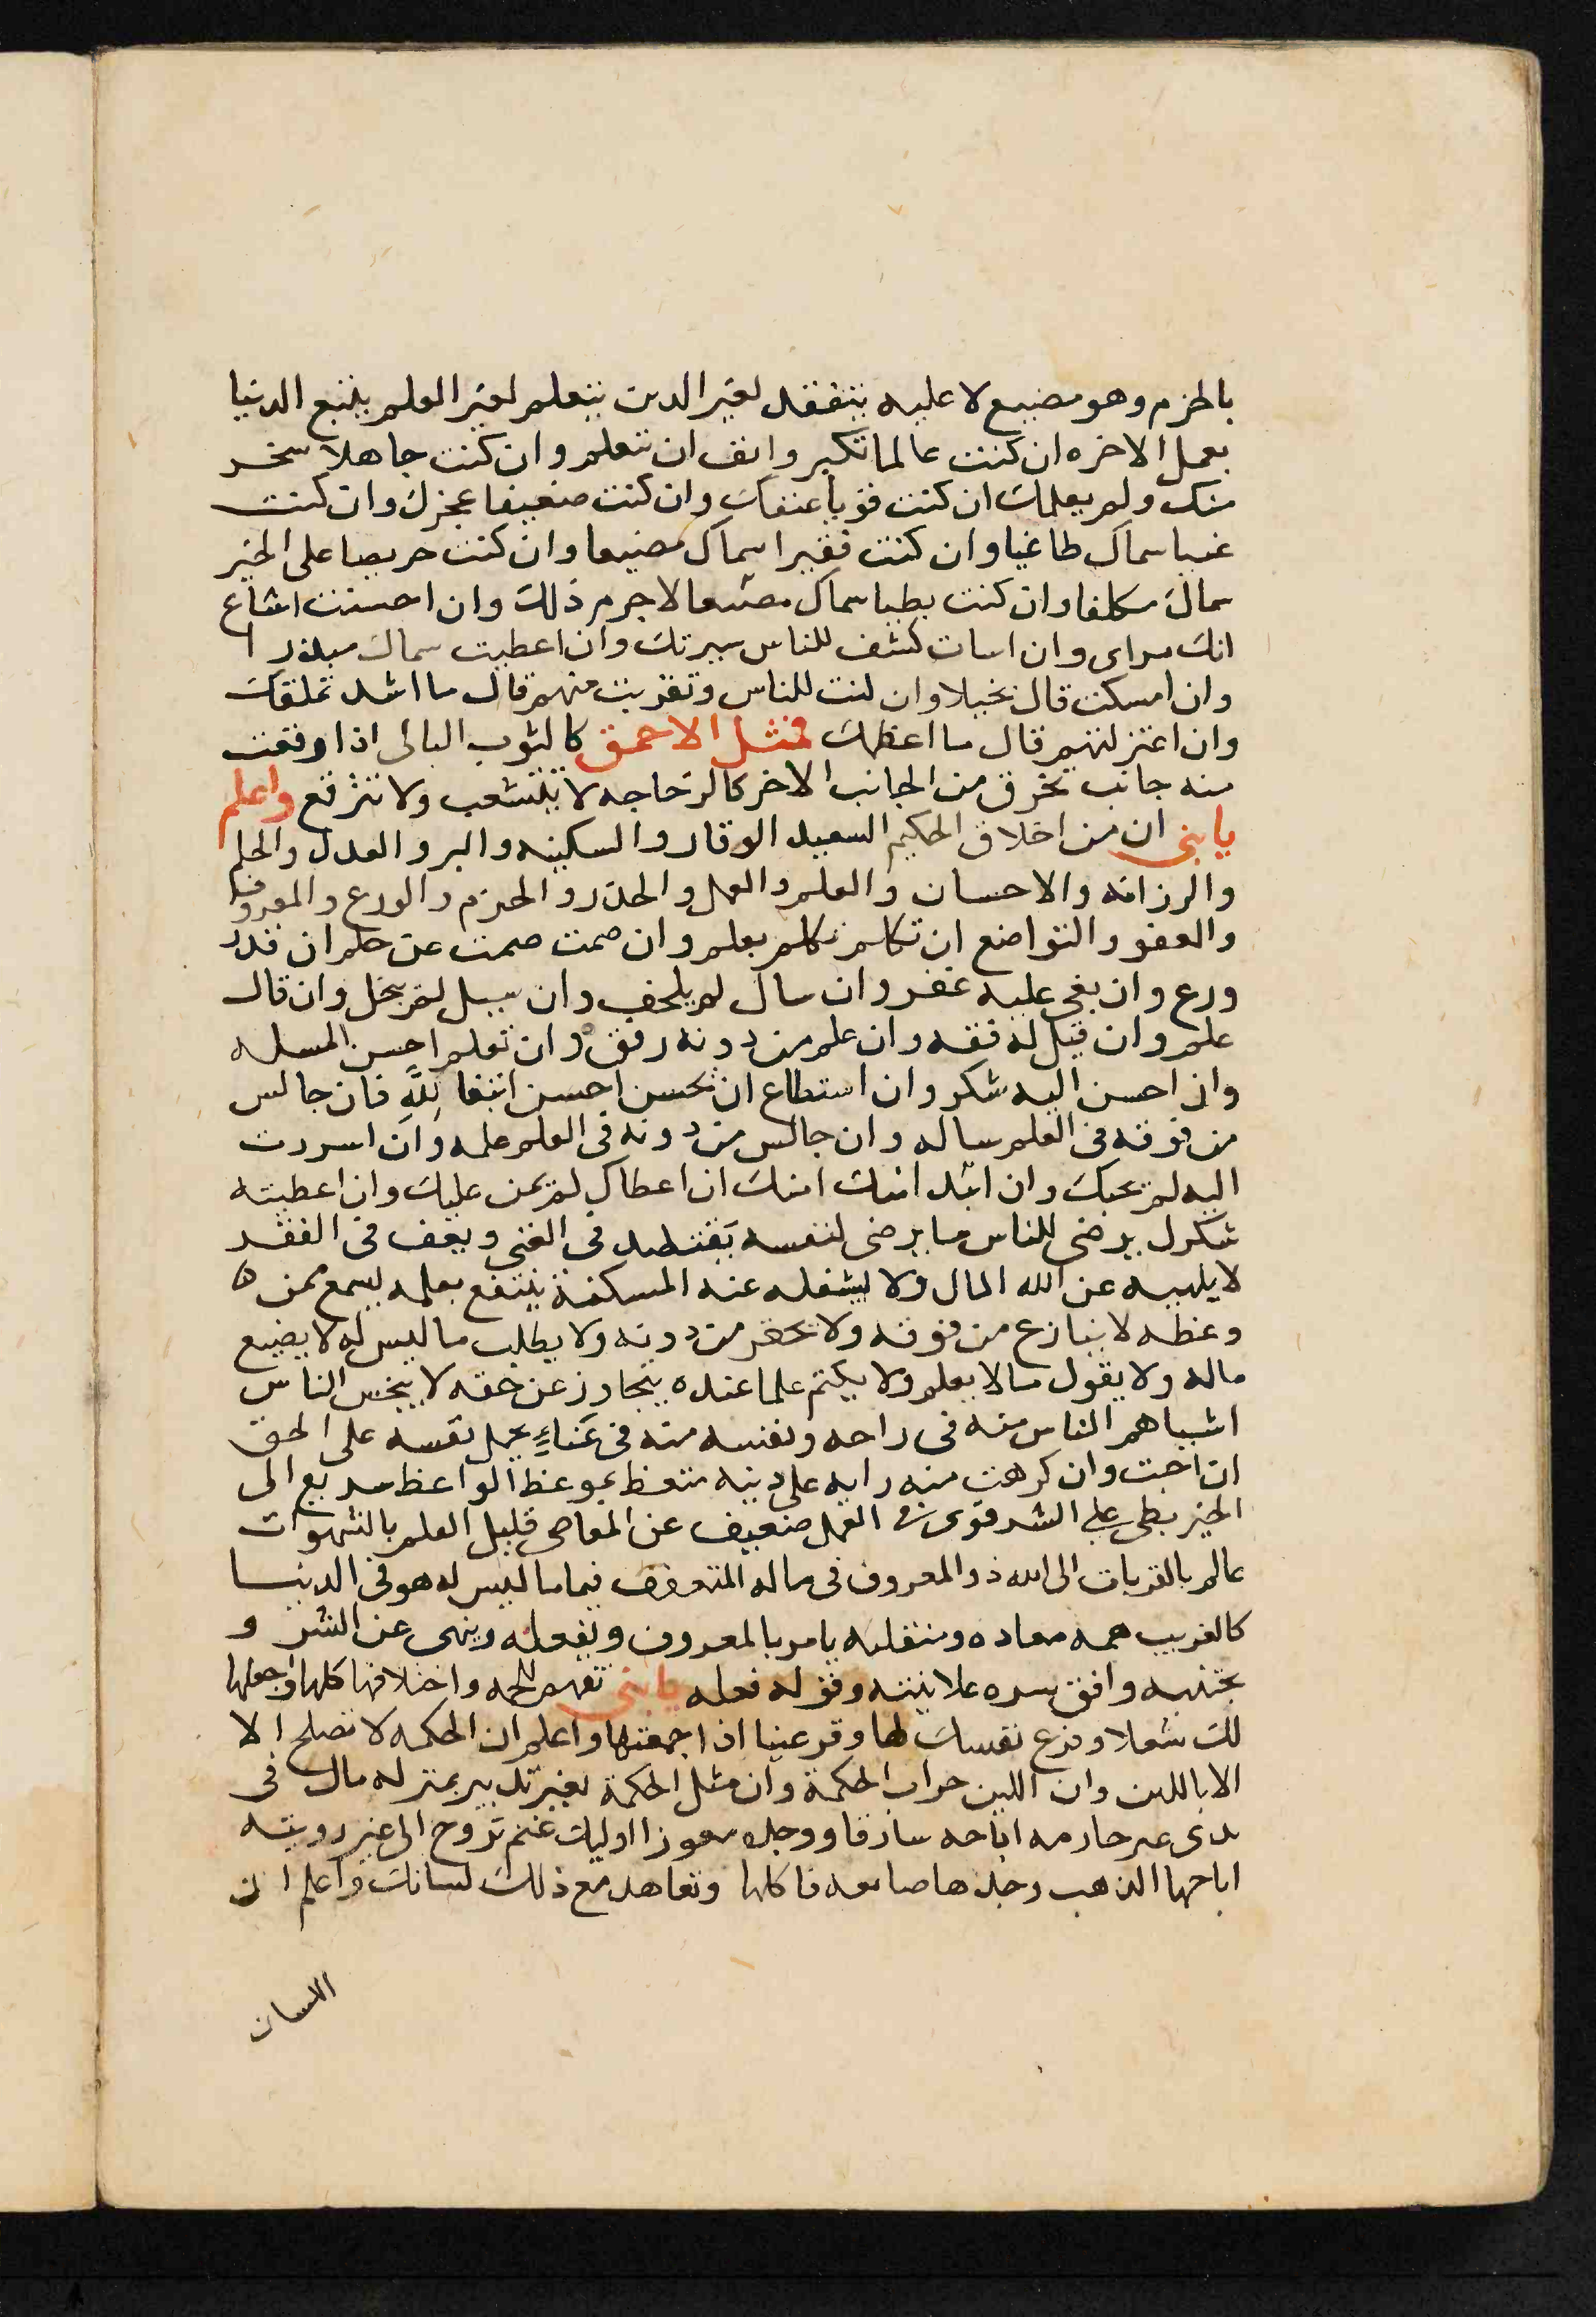 بالحزم وهو مضيع لا عليه يتفقه لغير الدين يتعلم لغير العلم يتبع الدنيا
بعمل الاخره ان كنت عالما تكبر وانف ان تتعلم وان كنت جاهلا سخر
منك ولم يعلمك ان كنت قويا عنفك وان كنت ضعيفا عجزك وان كنت
غنيا سماك طاغيا وان كنت فقيرا سماك مضيعا وان كنت حريصا على الخير
سماك مكلفا وان كنت بطيا سماك لا جرم ذلك وان احسنت اشاع
انك مراى وان اسات كشف للناس سيرتك وان اعطيت سماك مبذرا
وان امسكت قال بخيلا وان لنت للناس وتقربت منهم قال ما اشد تملقك
وان اعتزلتهم قال ما اعظمك فمثل الاحمق كالثوب البالى اذا وقعت
منه جانب تخرق من الجانب الاخر كالزجاجه لا تتشعب ولا تترقع واعلم
يا بنى ان من اخلاق الحكيم السعيد الوقار والسكينه والبر والعدل والحلم
والرزانه والاحسان والعلم والعمل والحذر والحزم والورع والمعروف
والعفو والتواضع ان تكلم تكلم بعلم وان صمت صمت عن حلم ان قدر
ورع وان بغى عليه غفر وان سال لم يلحف وان سيل لم يبخل وان قال
علم وان قيل له فقه وان علم من دونه رفق وان تعلم احسن المسله
وان احسن اليه شكر وان استطاع ان يحسن احسن ابتغا لله فان جالس
من فوقه فى العلم ساله وان جالس من دونه فى العلم علمه وان اسررت
اليه لم امنك ان اعطاك لم يمن عليك وان اعطيته
شكرك يرضى للناس ما يرضى لنفسه يقتصد فى الغنى ويعف فى الفقر
لا يلهيه عن الله المال ولا يشغله عنه المسكنة ينتفع بعلمه يسمع ممن
وعظه لا ينازع من فوقه ولا يحقر من دونه ولا يطلب ما ليس له لا يضيع
ماله ولا يقول ما لا يعلم ولا يكتم علما عنده يتجاوز عن حقه لا يبخس الناس
اشياهم الناس منه فى راحه ونفسه منه فى عناء يحمل نفسه على الحق
ان احبت وان كرهت منه رايه على دينه متعظ بموعظ الواعظ سريع الى
الخير بطى على الشر قوى فى العمل ضعيف عن المعاصى قليل العلم بالشهوات
عالم بالقربات الى الله ذو المعروف فى ماله المتعفف فيما ليس له هو فى الدنيا
كالغريب همه معاده ومنقلبه يامر بالمعروف ويفعله وينهى عن الشر و
يجتنبه وافق سره علانيته وقوله فعله يا بنى تفهم الحكمه واخلاقها كلها واجعلها
لك شغلا وفرغ نفسك لها وقر عينا اذا جمعتها واعلم ان الحكمه لا تصلح الا
الا باللين وان اللين جراب الحكمة وان مثل الحكمة بغير تدبير بمنزله مال فى
يدى غير حازمه اباحه سارقا ووجده معوزا اوليك غنم تروح الى غير رويته
اباحها الذهب وجدها ضايعه فاكلها وتعاهد مع ذلك لسانك واعلم ان
اللسان